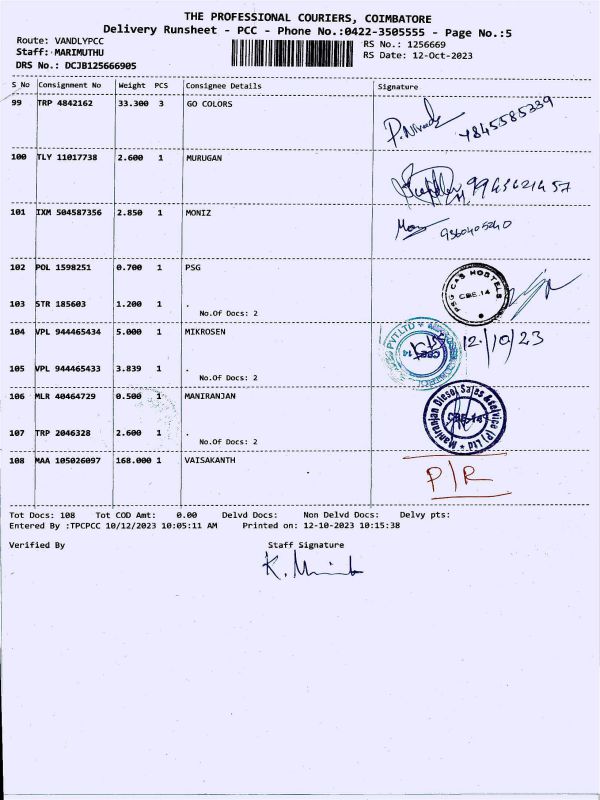 THE PROFESSIONAL COURIERS, COIMBATORE
Delivery Runsheet - PCC - Phone No.:0422-3505555 - Page No.:5
Route: VANDLYPCC RS No.: 1256669
Staff: MARIMUTHU RS Date: 12-Oct-2023
DRS No.: DCJB125666905
S_No Consignment No Weight PCS Consignee Details Signature
99 TRP 4842162 33.300 3 GO COLORS
100 TLY 11017738 2.600 1 MURUGAN
101 IXM 504587356 2.850 1 MONIZ
9360405240
102 POL 1598251 0.700 1 PSG
PSG CAS HOSTELS
CBE.14
103 STR 185603 1.200 1 .
No.Of Docs: 2
104 VPL 944465434 5.000 1 MIKROSEN
12/10/23
105 VPL 944465433 3.839 1 .
No.Of Docs: 2
106 MLR 40464729 0.500 1 MANIRANJAN
Maniranjan Diesel Sales & Service (P) Ltd
CBE-14
107 TRP 2046328 2.600 1 .
No.Of Docs: 2
108 MAA 105026097 168.000 1 VAISAKANTH
P/R
Tot Docs: 108 Tot COD Amt: 0.00 Delvd Docs: Non Delvd Docs: Delvy pts:
Entered By :TPCPCC 10/12/2023 10:05:11 AM Printed on: 12-10-2023 10:15:38
Verified By Staff Signature